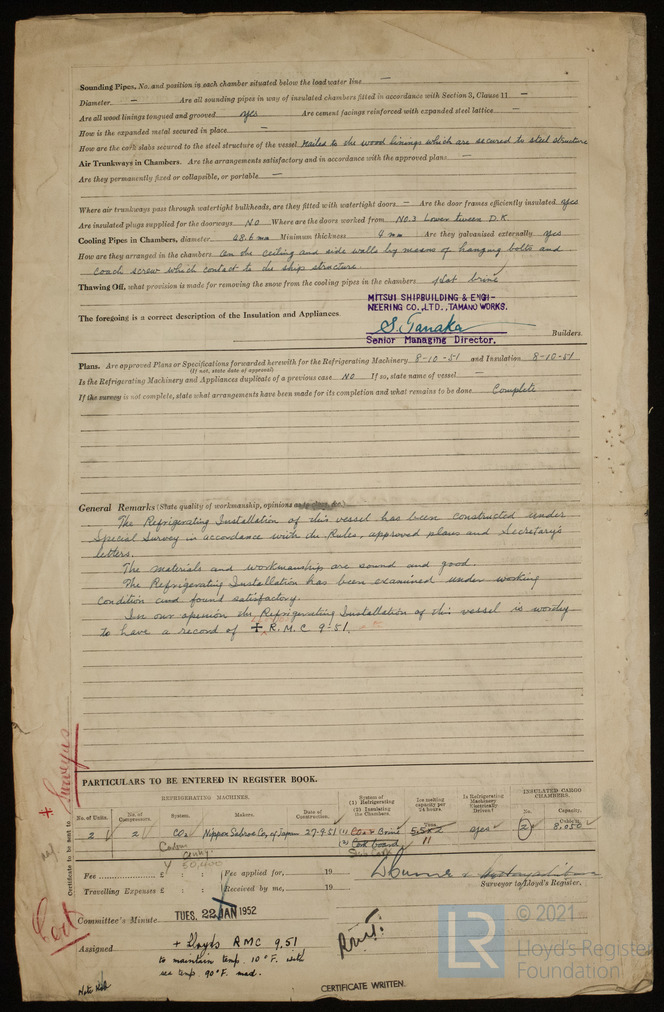 Sounding Pipes, No. and position in each chamber situated below the load water line —
Diameter — Are all sounding pipes in way of insulated chambers fitted in accordance with Section 3, Clause 11 —
Are all wood linings tongued and grooved yes Are cement facings reinforced with expanded steel lattice —
How is the expanded metal secured in place —
How are the cork slabs secured to the steel structure of the vessel Nailed to the wood linings which are secured to steel structure
Air Trunkways in Chambers. Are the arrangements satisfactory and in accordance with the approved plans —
Are they permanently fixed or collapsible, or portable —
Where air trunkways pass through watertight bulkheads, are they fitted with watertight doors — Are the door frames efficiently insulated yes
Are insulated plugs supplied for the doorways NO Where are the doors worked from NO.3 Lower tween D.K
Cooling Pipes in Chambers, diameter 48.6 mm Minimum thickness 4 mm Are they galvanised externally yes
How are they arranged in the chambers on the ceiling and side walls by means of hanging bolts and
coach screw which contact to the ship structure
Thawing Off, what provision is made for removing the snow from the cooling pipes in the chambers Hot brine
MITSUI SHIPBUILDING & ENGI-
NEERING CO., LTD., TAMANO WORKS.
The foregoing is a correct description of the Insulation and Appliances.
S. Tanaka
Senior Managing Director.
Builders.
Plans. Are approved Plans or Specifications forwarded herewith for the Refrigerating Machinery 8-10-51 and Insulation 8-10-51
(If not, state date of approval)
Is the Refrigerating Machinery and Appliances duplicate of a previous case NO If so, state name of vessel —
If the survey is not complete, state what arrangements have been made for its completion and what remains to be done Complete
General Remarks (State quality of workmanship, opinions as to class, &c.)
The Refrigerating Installation of this vessel has been constructed under
Special Survey in accordance with the Rules, approved plans and Secretary's
letters.
The materials and workmanship are sound and good.
The Refrigerating Installation has been examined under working
condition and found satisfactory.
In our opinion the Refrigerating Installation of this vessel is worthy
to have a record of + R.M.C 9-51.
Certificate to be sent to Surveyors
PARTICULARS TO BE ENTERED IN REGISTER BOOK.
REFRIGERATING MACHINES.
INSULATED CARGO CHAMBERS.
No. of Units. No. of Compressors. System. Makers. Date of Construction. System of (1) Refrigerating (2) Insulating the Chambers. Ice melting capacity per 24 hours. Is Refrigerating Machinery Electrically Driven? No. Capacity.
Tons Cubic ft.
2 2 CO2 Nippon Sabroe Co. of Japan 27-9-51 (1) CO2 & Brine 5.5x2 yes 2 8,050
(2) Cork Board 11
Fee £ : : Fee applied for, 19
Travelling Expenses £ : : Received by me, 19
Surveyor to Lloyd's Register.
Committee's Minute TUES. 22 JAN 1952
Assigned + Lloyds RMC 9.51
to maintain temp. 10°F. with
sea temp. 90°F. max.
Cert
CERTIFICATE WRITTEN.
LR
© 2021
Lloyd's Register
Foundation